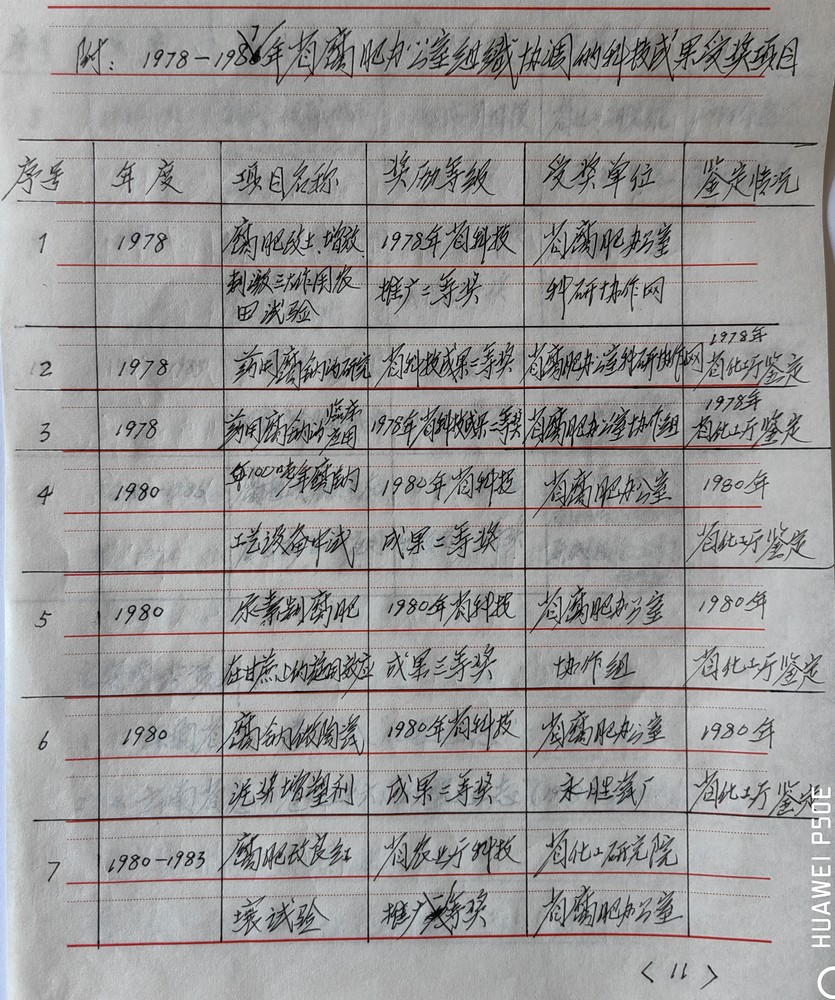 附：1978－1987年省腐肥办公室组织协调的科技成果受奖项目
序号 年度 项目名称 奖励等级 受奖单位 鉴定情况
1 1978 腐肥改土、增效、 1978年省科技 省腐肥办公室
刺激三大作用农 推广二等奖 科研协作网
田试验
1978年
2 1978 药用腐钠的研究 省科技成果二等奖 省腐肥办公室科研协作网 省化工厅鉴定
临床 1978年
3 1978 药用腐钠的应用 1978年省科技成果二等奖 省腐肥办公室协作组 省化工厅鉴定
4 1980 年100吨年腐钠 1980年省科技 省腐肥办公室 1980年
工艺设备中试 成果二等奖 省化工厅鉴定
5 1980 尿素制腐肥 1980年省科技 省腐肥办公室 1980年
在甘蔗上的施用效应 成果三等奖 协作组 省化工厅鉴定
6 1980 腐钠做陶瓷 1980年省科技 省腐肥办公室 1980年
泥浆增塑剂 成果三等奖 永胜瓷厂 省化工厅鉴定
7 1980－1983 腐肥改良红 省农业厅科技 省化工研究院
壤试验 推广等奖 省腐肥办公室
〈11〉
HUAWEI P50E